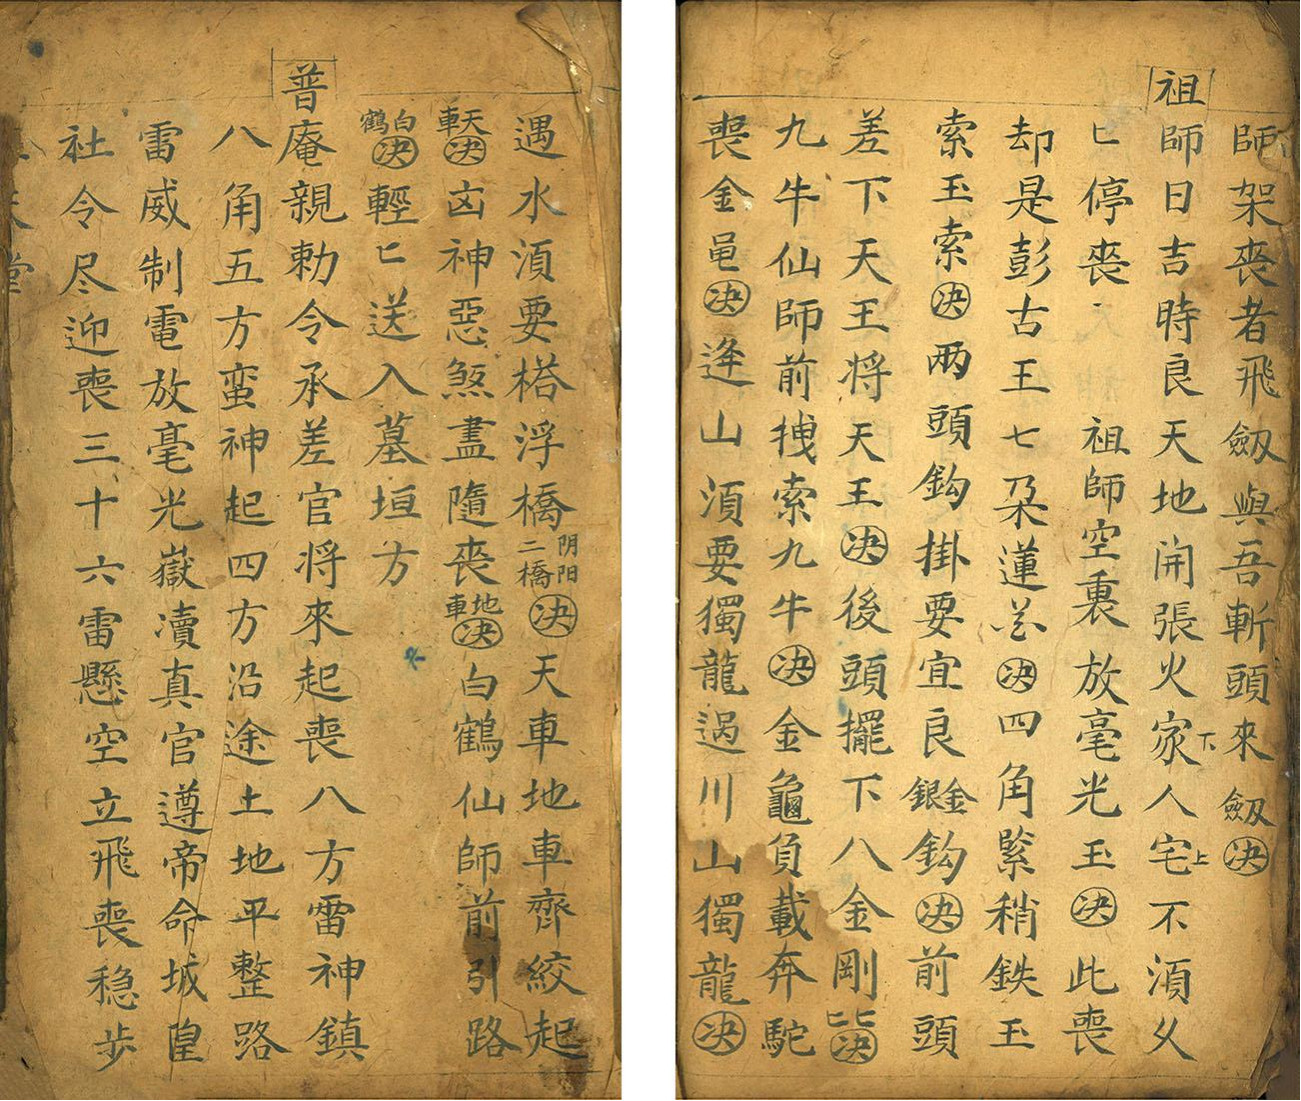 師架丧者飛劔與吾斬頭來劔决
祖師日吉時良天地開張火家下人宅上不湏乆
匕停丧 祖師空裏放毫光玉决此喪
却是彭古王七朵蓮花决四角緊稍鉄玉
索玉索决兩頭鈎掛要宜良金銀鈎决前頭
差下天王将天王决後頭擺下八金剛匕匕决
九牛仙師前拽索九牛决金龜負載奔駝
喪金黽决逄山湏要獨龍過川山獨龍决
遇水湏要搭浮橋阴阳二橋决天車地車齊絞起
天車决凶神惡煞盡隨喪地車决白鶴仙師前引路
白鶴决輕匕送入墓垣方
普庵親勅令承差官将來起喪八方雷神鎮
八角五方蛮神起四方沿途土地平整路
雷威制電放毫光嶽瀆真官遵帝命城隍
社令尽迎喪三十六雷懸空立飛喪稳步